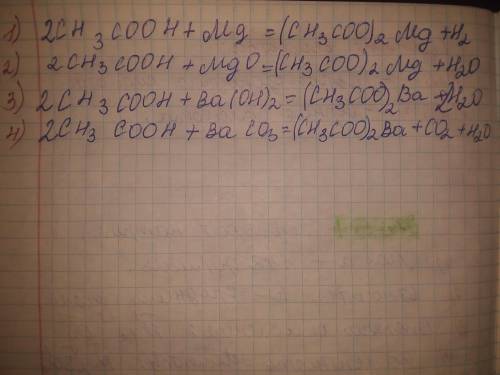 1) 2CH₃COOH + Mg = (CH₃COO)₂Mg + H₂
2) 2CH₃COOH + MgO = (CH₃COO)₂Mg + H₂O
3) 2CH₃COOH + Ba(OH)₂ = (CH₃COO)₂Ba + 2H₂O
4) 2CH₃COOH + BaCO₃ = (CH₃COO)₂Ba + CO₂ + H₂O